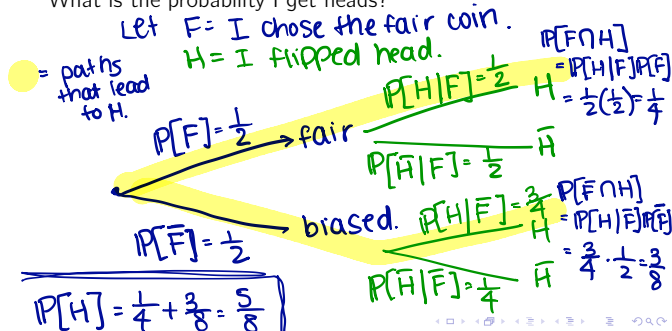 What is the probability I get heads?
Let F = I chose the fair coin.
H = I flipped head.
= paths that lead to H.
P[F] = 1/2
fair
P[H|F] = 1/2
H
P[F∩H]
= P[H|F]P[F]
= 1/2(1/2) = 1/4
P[H̅|F] = 1/2
H̅
P[F̅] = 1/2
biased.
P[H|F̅] = 3/4
H
P[F̅∩H]
= P[H|F̅]P[F̅]
= 3/4 · 1/2 = 3/8
P[H̅|F̅] = 1/4
H̅
P[H] = 1/4 + 3/8 = 5/8